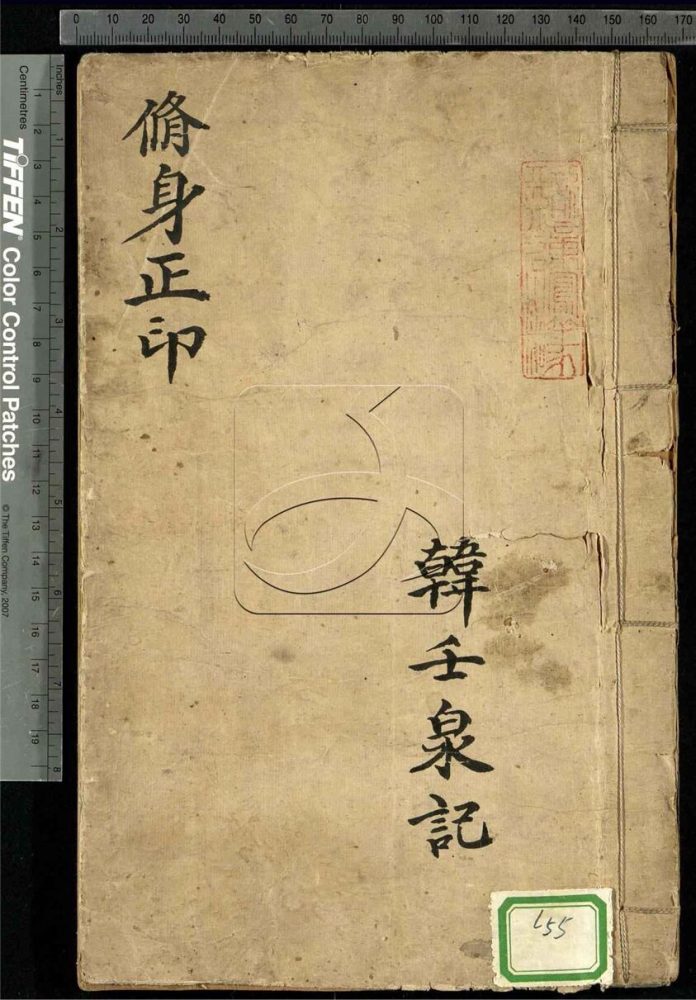 0 10 20 30 40 50 60 70 80 90 100 110 120 130 140 150 160 170
脩身正印
韓壬泉記
L55
Inches
1 2 3 4 5 6 7 8
Centimetres
1 2 3 4 5 6 7 8 9 10 11 12 13 14 15 16 17 18 19
TIFFEN Color Control Patches
© The Tiffen Company, 2007